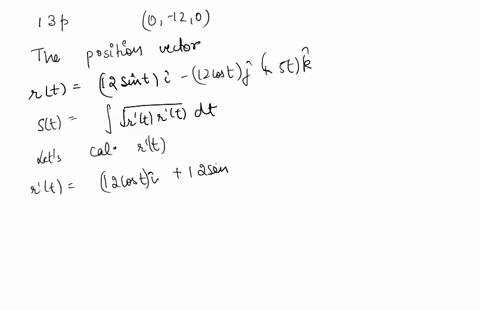 13p (0,-12,0)
The position vector
r(t) = (12sint)î - (12cost)ĵ (+ 5t)k̂
S(t) = ∫√r'(t) r'(t) dt
Let's cal. r'(t)
r'(t) = (12cost)î + 12sin